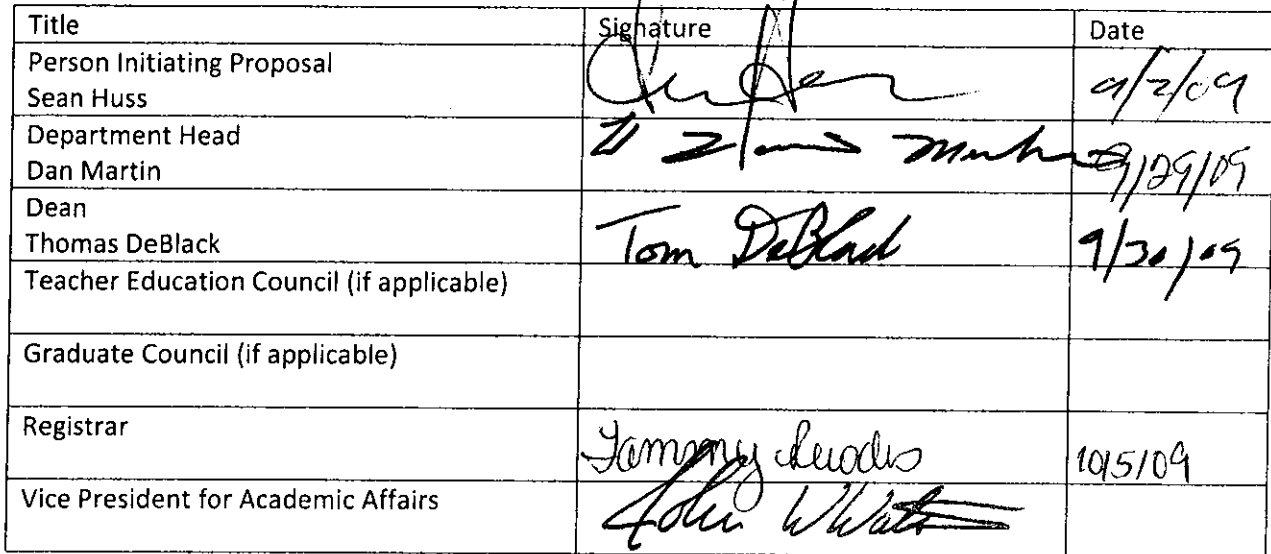 Title Signature Date
Person Initiating Proposal
Sean Huss 9/2/09
Department Head
Dan Martin 9/29/09
Dean
Thomas DeBlack Tom DeBlack 9/30/09
Teacher Education Council (if applicable)
Graduate Council (if applicable)
Registrar Tammy Rhodes 10/5/09
Vice President for Academic Affairs John W Watson